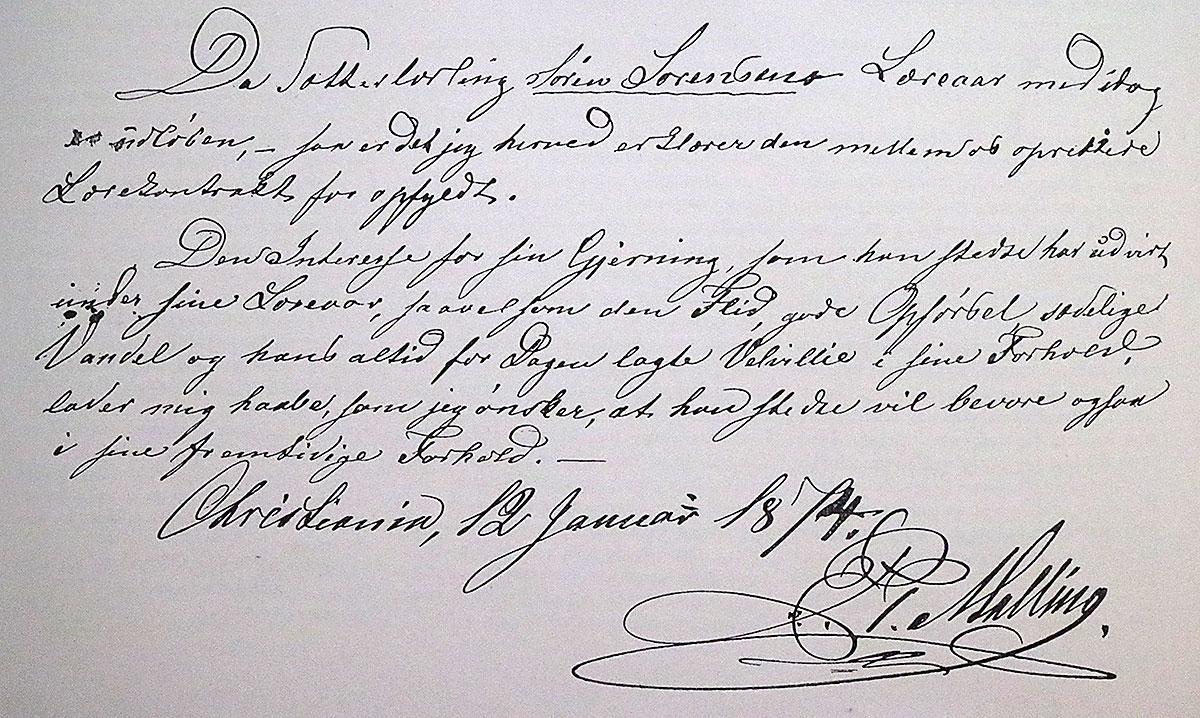 Da Sætterlærling Sören Sørensens Læreaar med idag
er udløben, – saa er det jeg herved erklærer den mellem os oprettede
Lærekontrakt for opfyldt.
Den Interesse for sin Gjerning, som han stedse har udvist
under sine Læreaar, saavelsom den Flid, gode Opførsel sædelige
Vandel og hans altid for Dagen lagte Velvillie i sine Forhold,
lader mig haabe, som jeg ønsker, at han stedse vil bevare ogsaa
i sine fremtidige Forhold. —
Christiania, 12 Januar 1874.
P. T. Malling.